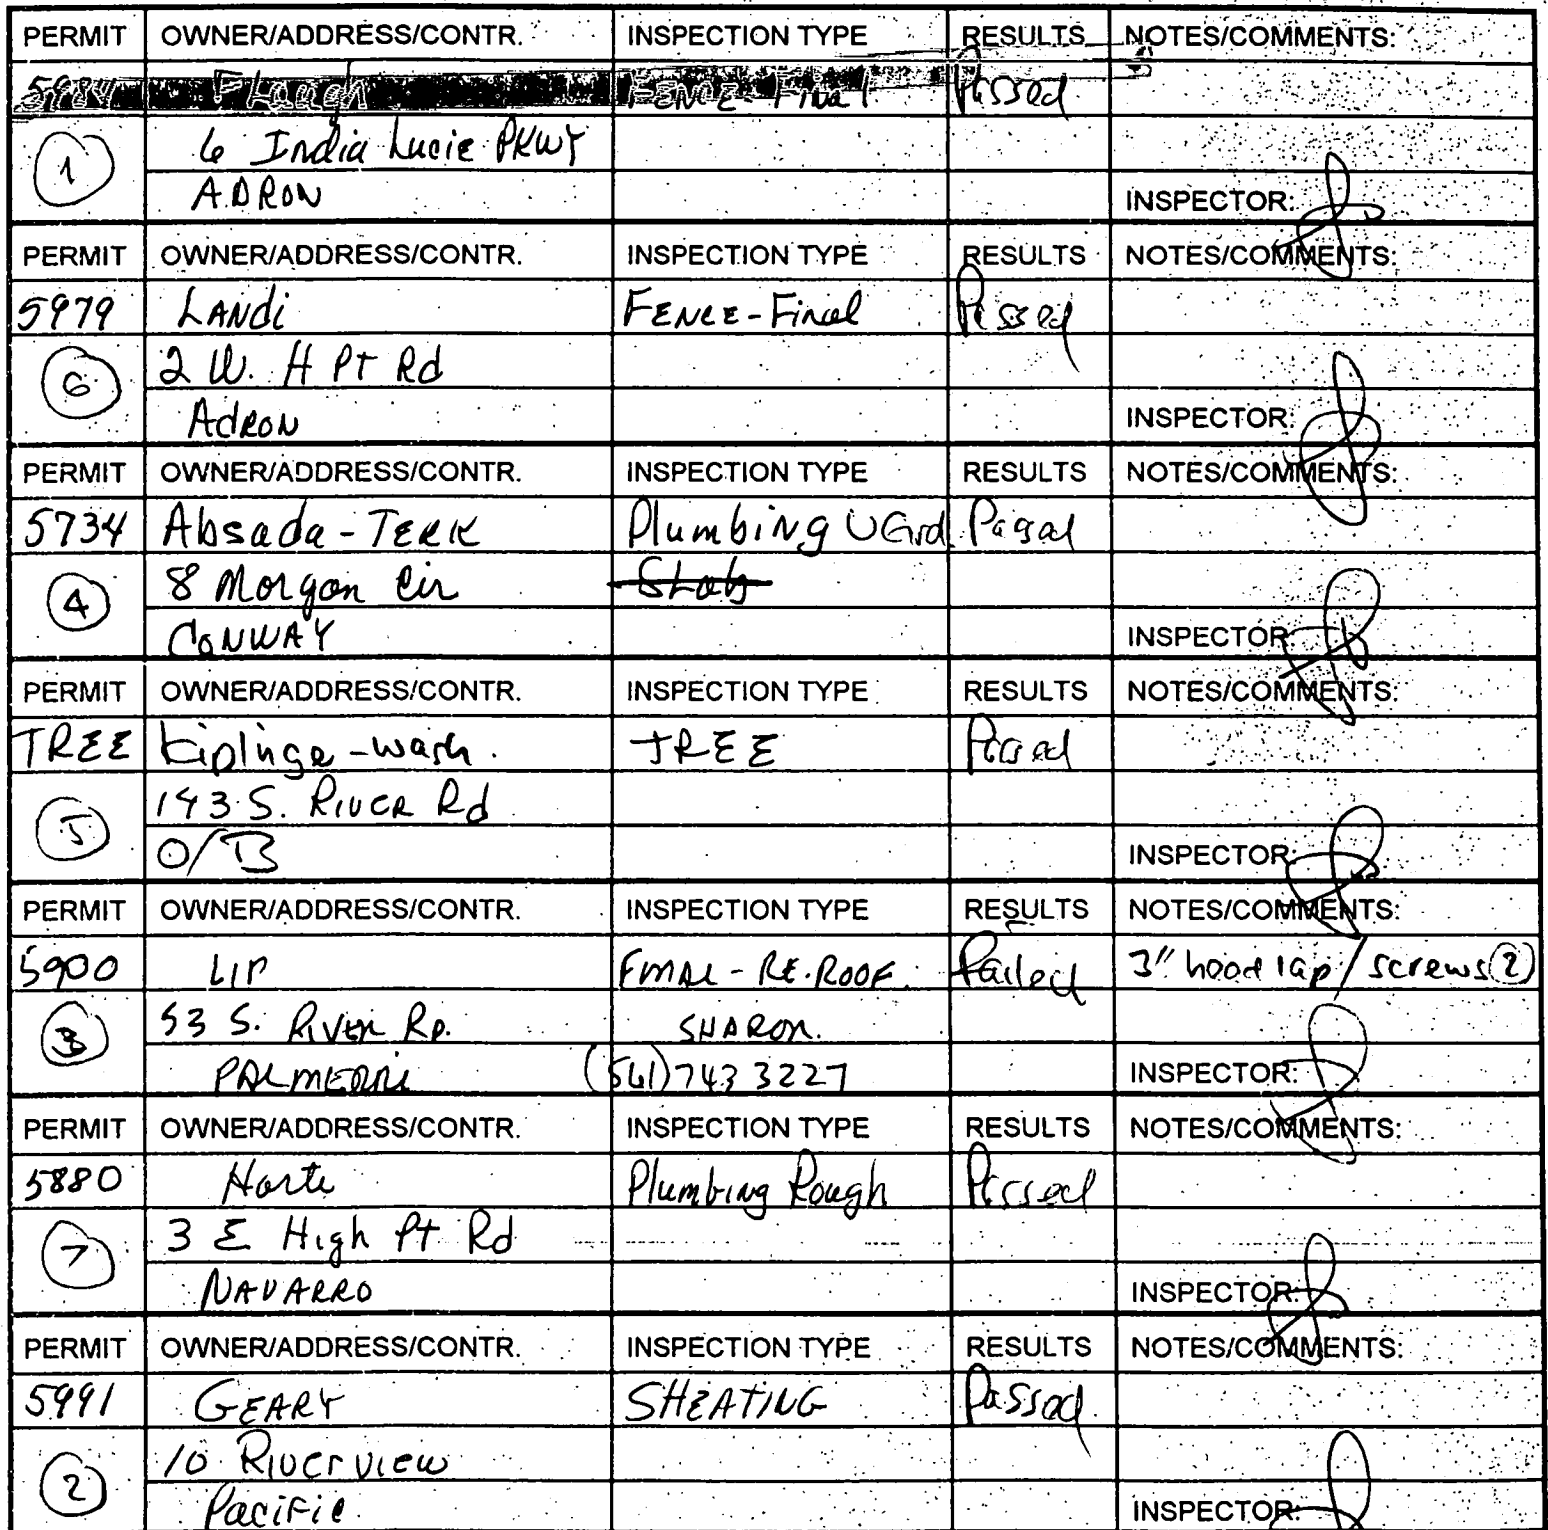 PERMIT OWNER/ADDRESS/CONTR. INSPECTION TYPE RESULTS NOTES/COMMENTS:
FENCE-Final Passed
1 6 India Lucie PKWY
ADRON INSPECTOR:
PERMIT OWNER/ADDRESS/CONTR. INSPECTION TYPE RESULTS NOTES/COMMENTS:
5979 LANDi FENCE-Final Passed
6 2 W. H PT Rd
AdRON INSPECTOR:
PERMIT OWNER/ADDRESS/CONTR. INSPECTION TYPE RESULTS NOTES/COMMENTS:
5734 Absada-TERK Plumbing UGrd Passed
4 8 Morgan Cir SLab
CONWAY INSPECTOR:
PERMIT OWNER/ADDRESS/CONTR. INSPECTION TYPE RESULTS NOTES/COMMENTS:
TREE Kiplinge-wash. TREE Passed
5 143 S. RIVER Rd
O/B INSPECTOR:
PERMIT OWNER/ADDRESS/CONTR. INSPECTION TYPE RESULTS NOTES/COMMENTS:
5900 FINAL-RE.ROOF. Failed 3" head lap/screws (2)
3 53 S. RIVER RD. SHARON.
(561)743 3227 INSPECTOR:
PERMIT OWNER/ADDRESS/CONTR. INSPECTION TYPE RESULTS NOTES/COMMENTS:
5880 Harte Plumbing Rough Passed
7 3 E High Pt Rd
NAVARRO INSPECTOR:
PERMIT OWNER/ADDRESS/CONTR. INSPECTION TYPE RESULTS NOTES/COMMENTS:
5991 GEARY SHEATING Passed
2 10 Riverview
Pacific INSPECTOR: